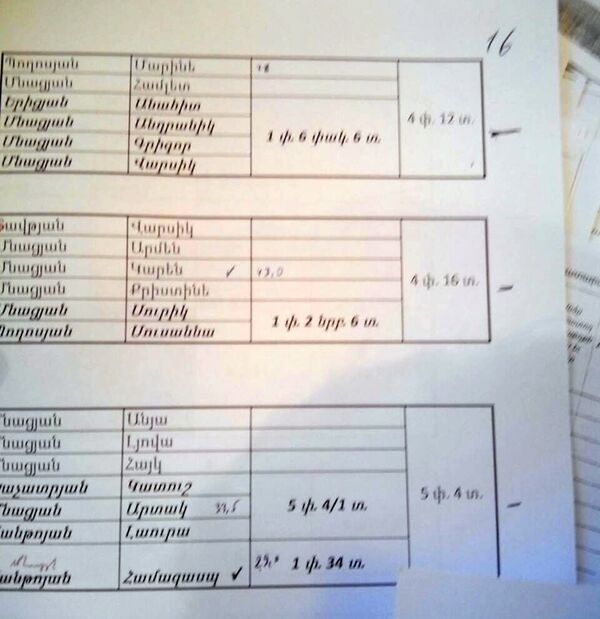 16
Պողոսյան Մարինե 18
Մնացյան Համլետ
Երիցյան Անահիտ
Մնացյան Անդրանիկ 1 փ. 6 փակ. 6 տ. 4 փ. 12 տ.
Մնացյան Գրիգոր
Մնացյան Վարսիկ
Վարսիկ
Մնացյան Արմեն
Մնացյան Կարեն ✓ 43,0 4 փ. 16 տ.
Մնացյան Քրիստինե
Մնացյան Սուրիկ 1 փ. 2 նրբ. 6 տ.
Պողոսյան Սուսաննա
Մնացյան Անյա
Մնացյան Լյովա
Մնացյան Հայկ
Խաչատրյան Գատուշ 5 փ. 4 տ.
Մնացյան Արտակ 33,5 5 փ. 4/1 տ.
Մանթոյան Լաուրա
Մանթոյան Համազասպ ✓ 1 փ. 34 տ.